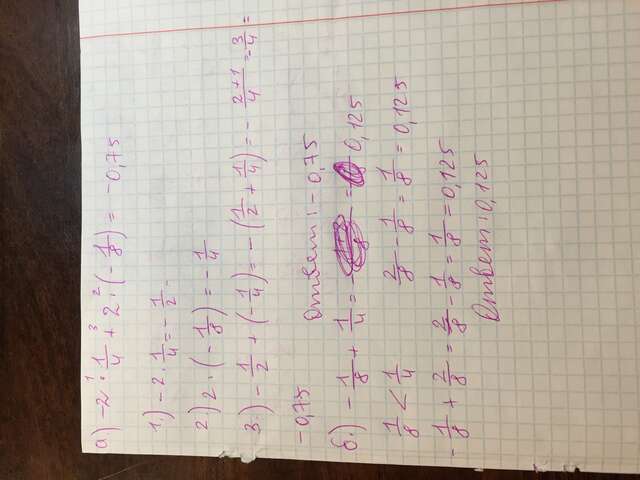 а.) -2 ¹· 1/4 ³+ 2 ²· (- 1/8) = -0,75
1.) -2 · 1/4 = - 1/2
2.) 2 · (- 1/8) = - 1/4
3.) - 1/2 + (- 1/4) = - (1/2 + 1/4) = - 2+1/4 = - 3/4 =
-0,75 Ответ: -0,75
б.) - 1/8 + 1/4 = = 0,125
1/8 < 1/4 2/8 - 1/8 = 1/8 = 0,125
- 1/8 + 2/8 = 2/8 - 1/8 = 1/8 = 0,125
Ответ: 0,125